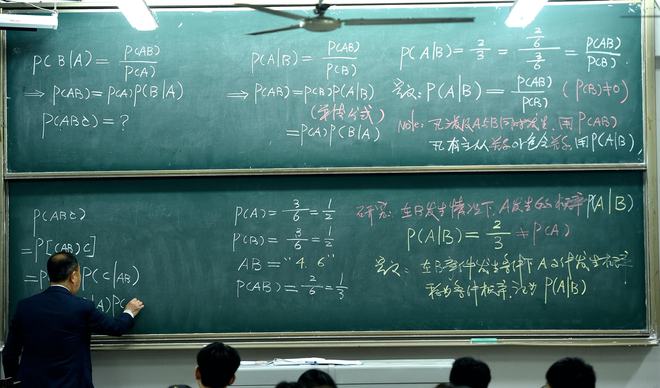 P(B|A) = P(AB)/P(A)
⇒ P(AB) = P(A)P(B|A)
P(ABC) = ?
P(A|B) = P(AB)/P(B)
⇒ P(AB) = P(B)P(A|B)
(乘法公式)
= P(A)P(B|A)
P(A|B) = 2/3 = (2/6)/(3/6) = P(AB)/P(B)
定义: P(A|B) = P(AB)/P(B) (P(B)≠0)
Note: 凡涉及A与B同时发生, 用P(AB)
凡有主从关系 包含关系, 用P(A|B)
P(ABC)
= P[(AB)C]
= P P(C|AB)
A)P(
P(A) = 3/6 = 1/2
P(B) = 3/6 = 1/2
AB = "4, 6"
P(AB) = 2/6 = 1/3
研究: 在B发生情况下, A发生的概率P(A|B)
P(A|B) = 2/3 ≠ P(A)
定义: 在B事件发生条件下A事件发生概率
称为条件概率, 记为P(A|B)